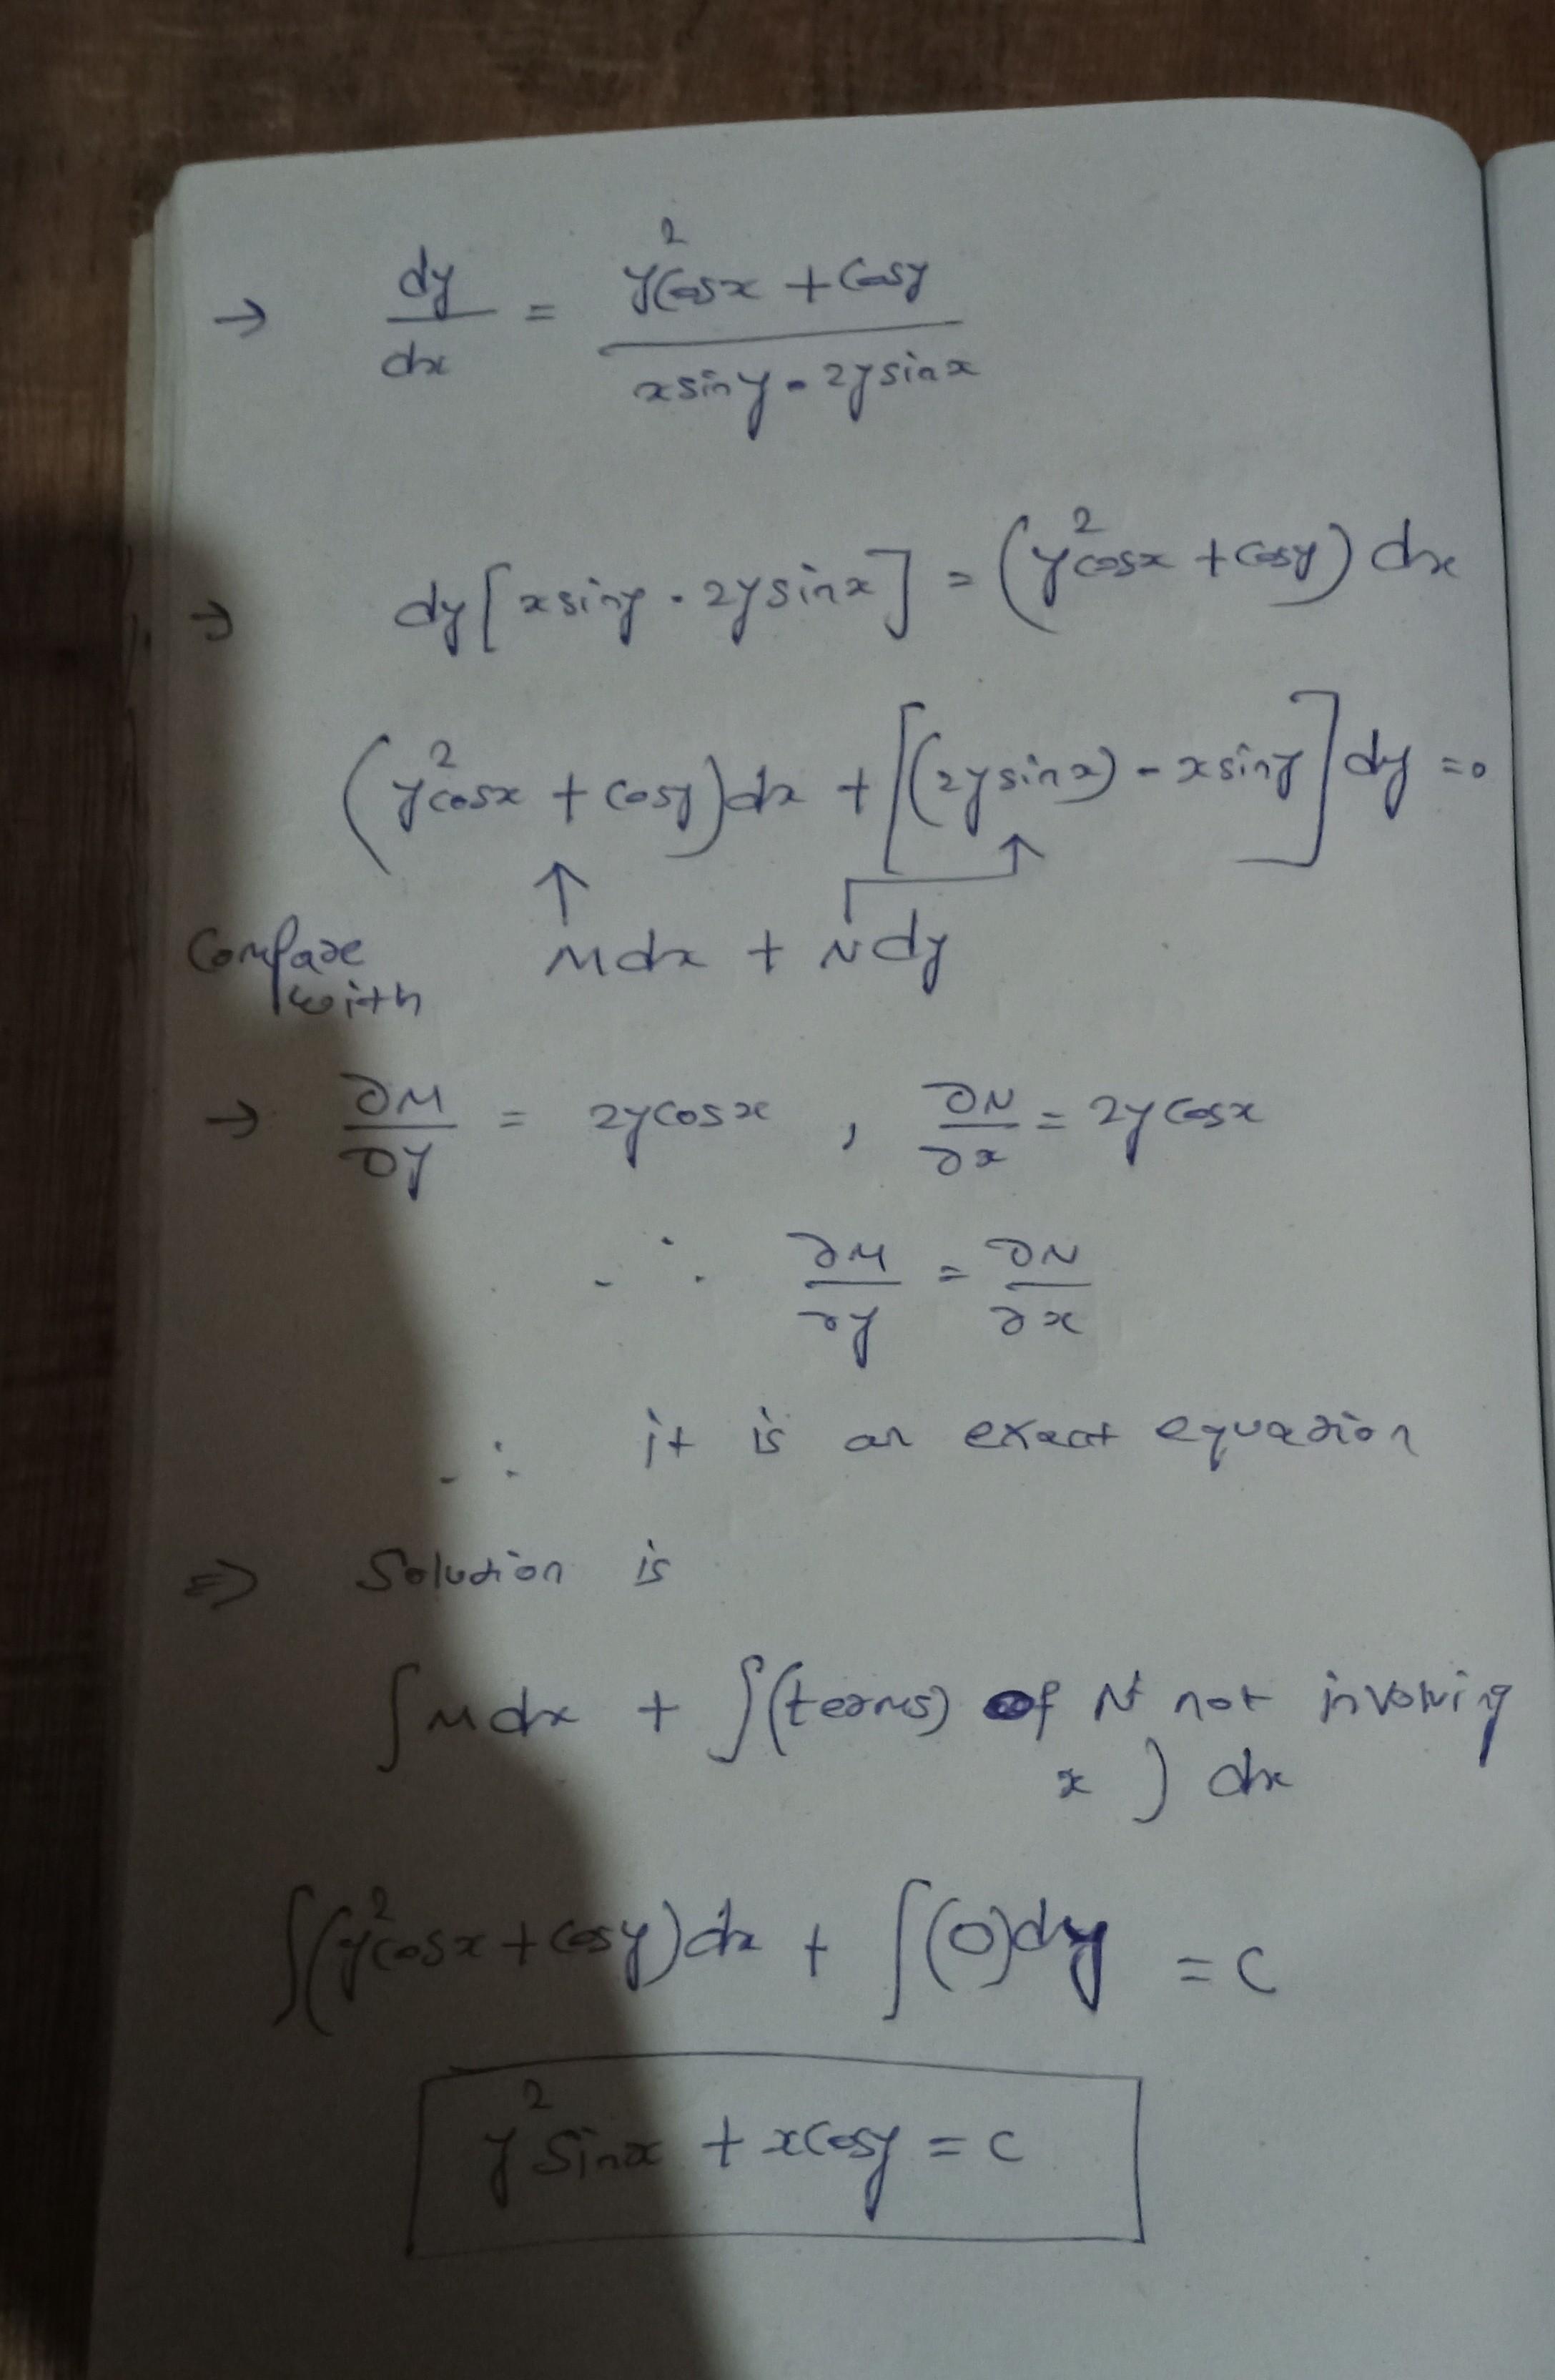 → dy/dx = (y²cosx + cosy)/(xsiny - 2ysinx)
→ dy[xsiny - 2ysinx] = (y²cosx + cosy) dx
(y²cosx + cosy)dx + [(2ysinx) - xsiny]dy =0
↑ ↑
Compare with Mdx + Ndy
→ ∂M/∂y = 2ycosx , ∂N/∂x = 2ycosx
∴ ∂M/∂y = ∂N/∂x
∴ it is an exact equation
⇒ Solution is
∫Mdx + ∫(terms) of N not involving
x) dx
∫(y²cosx + cosy)dx + ∫(0)dy = c
y²Sinx + xcosy = c